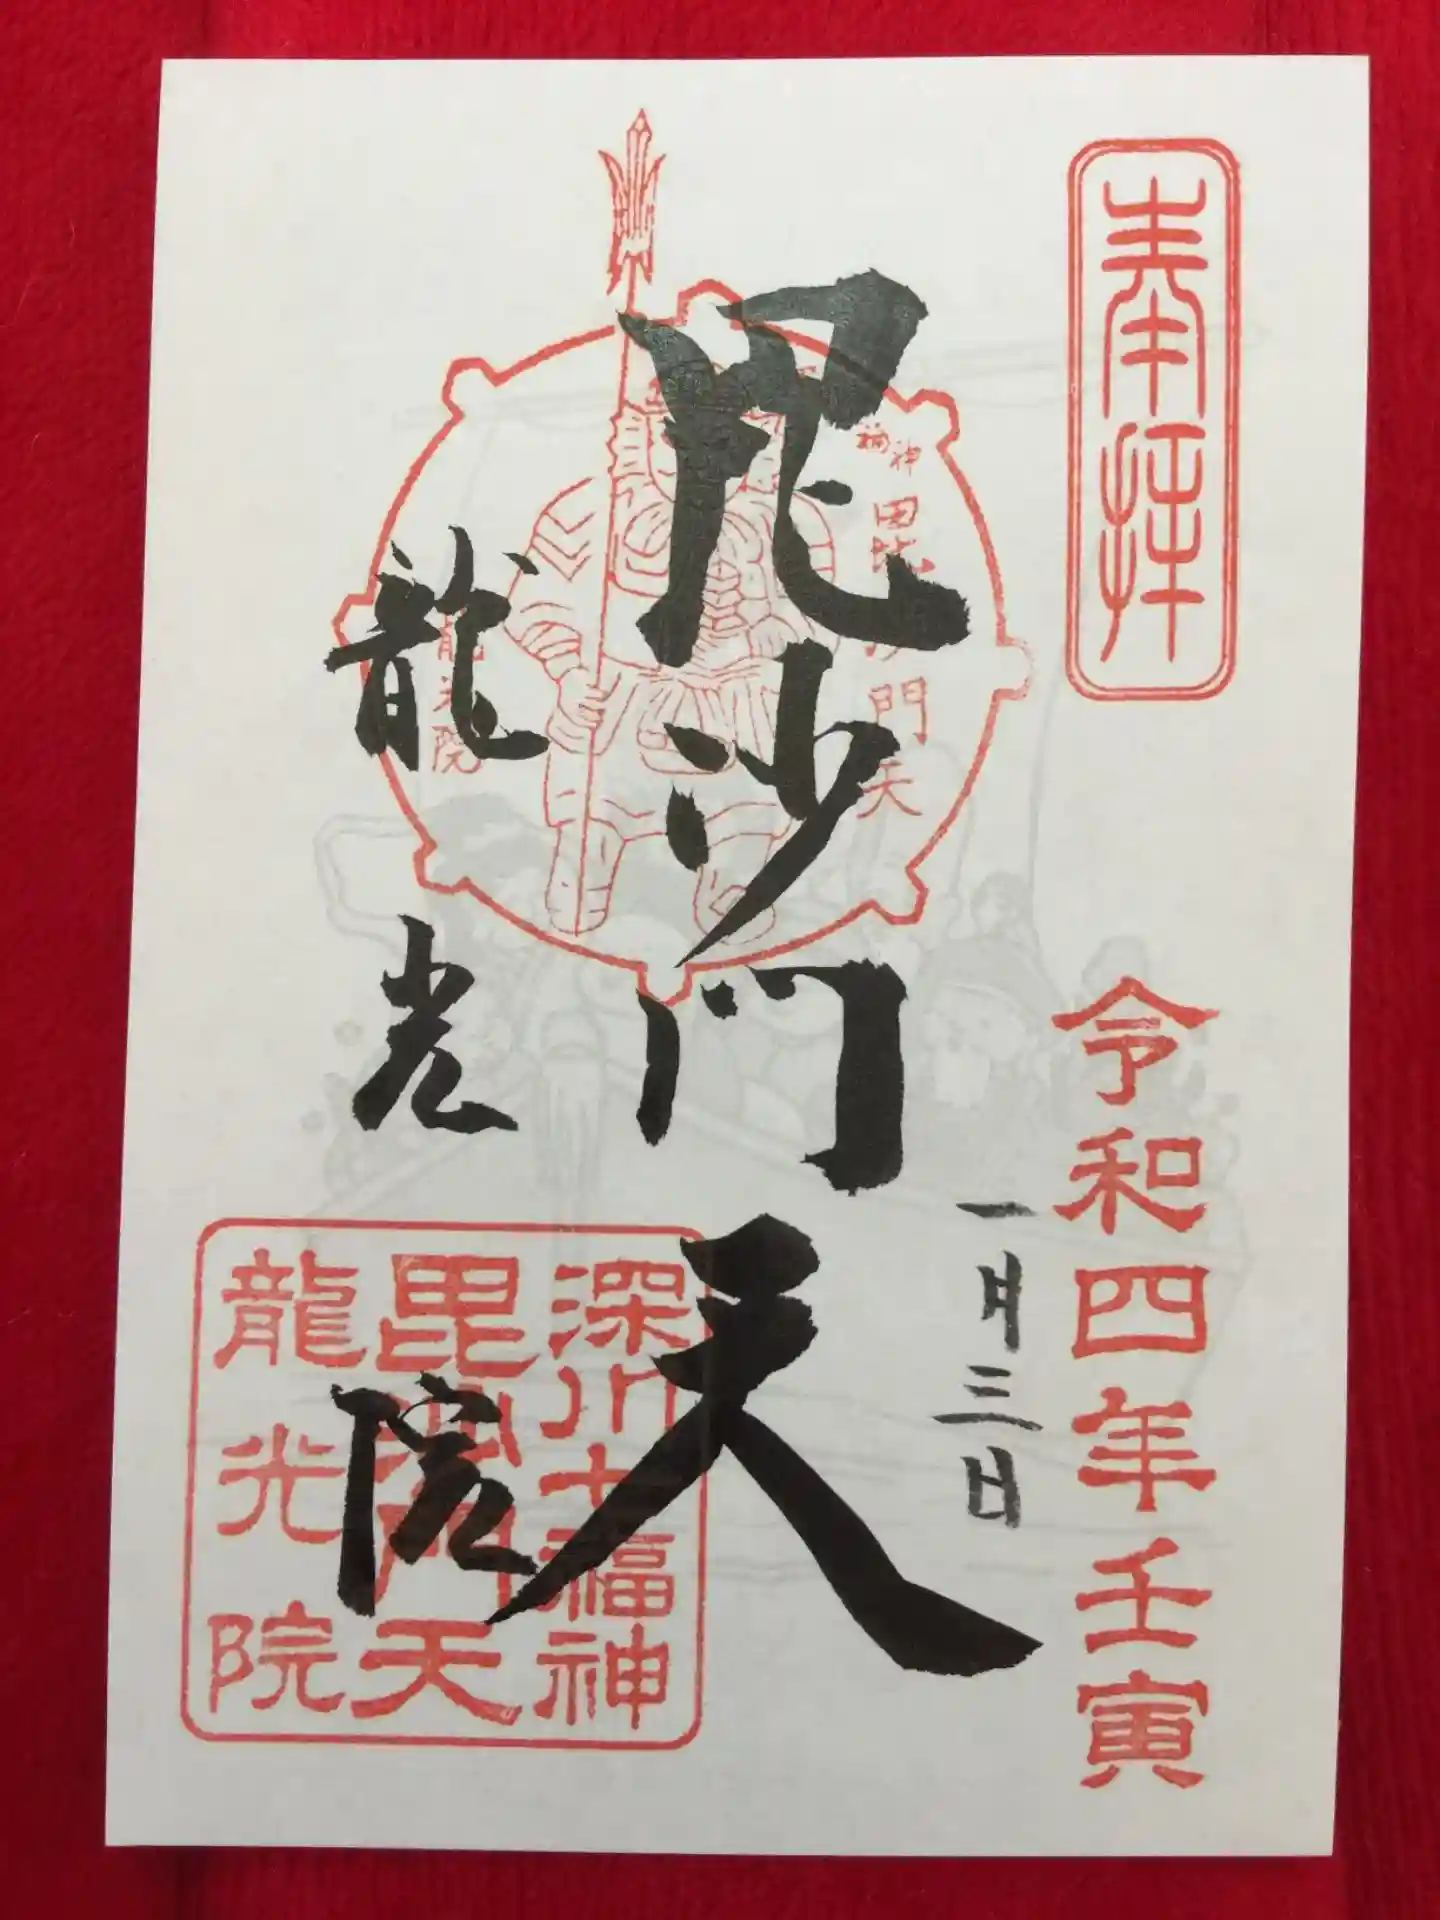 奉拝
令和四年壬寅
一月三日
毘沙門天
龍光院
福神
毘沙門天
龍光院
深川七福神
毘沙門天
龍光院